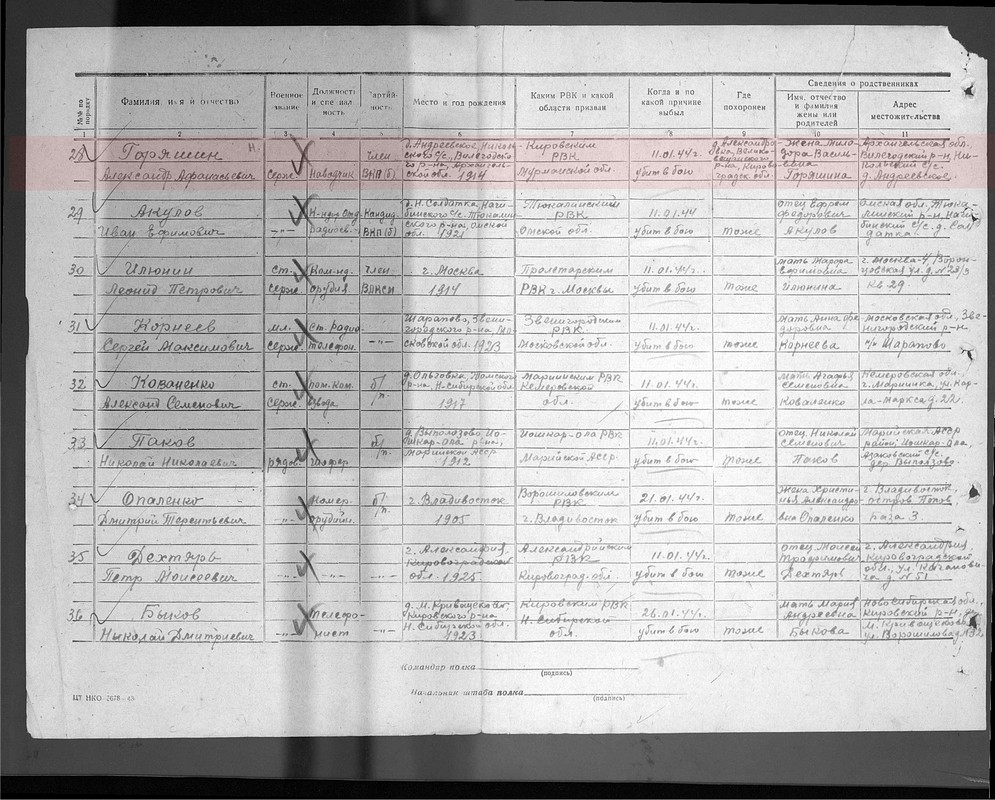 Сведения о родственниках
№№ по порядку
Фамилия, имя и отчество
Военное звание
Должность и специальность
Партийность
Место и год рождения
Каким РВК и какой области призван
Когда и по какой причине выбыл
Где похоронен
Имя, отчество и фамилия жены или родителей
Адрес местожительства
1 2 3 4 5 6 7 8 9 10 11
28 Горяшин Александр Афанасьевич серж. Наводчик член ВКП(б) д. Андреевское, с/с, Вилегодского р-на, Архангельской обл. 1914 Кировским РВК Мурманской обл. 11.01.44г. убит в бою Кировоградск. обл. Жена Горяшина Архангельская обл. Вилегодский р-н, с/с, д. Андреевское
29 Акулов Иван Ефимович -"- Кандид. ВКП(б) д. Н. Солдатка, с/с. Омской обл. 1921 Тюкалинским РВК Омской обл. 11.01.44 убит в бою тоже отец Ефрем Федорович Акулов Омская обл. Тюкалинский р-н, с/с. д. Солдатка
30 Илюнин Леонид Петрович ст. серж. Команд. орудия член ВЛКСМ г. Москва 1914 Пролетарским РВК г. Москвы 11.01.44г. убит в бою тоже мать Ефимовна Илюнина г. Москва-4 Воронцовская ул. д. № 23/3 кв 29
31 Корнеев Сергей Максимович мл. серж. ст. радио-телефон. -"- Шарапово, Звенигородского р-на, Московской обл. 1923 Звенигородским РВК Московской обл. 11.01.44г. убит в бою тоже мать Анна Федоровна Корнеева Московская обл., Звенигородский р-н п/о Шарапово
32 Коваленко Александ Семенович ст. серж. пом. ком. взвода б/п. д. Ольговка, р-на, Н-Сибирской обл. 1917 Мариинским РВК Кемеровской обл. 11.01.44г. убит в бою тоже мать Агафья Семеновна Коваленко Кемеровская обл. г. Мариинка, ул. Карла-маркса д. 22.
33 Паков Николай Николаевич рядов. шофер б/п. д. Выползово Йошкар-Ола р-на, Марийской АССР 1912 Йошкар-ола РВК Марийской АССР. 11.01.44г. убит в бою тоже отец Николай Семенович Паков Марийская АССР район Йошкар-Ола, с/с. дер. Выползово
34 Опаленко Дмитрий Терентьевич -"- номер. орудийн. б/п. г. Владивосток 1905 Ворошиловским РВК г. Владивосток 21.01.44г. убит в бою тоже жена Христинья Александровна Опаленко г. Владивосток,
35 Дехтярь Петр Моисеевич -"- -"- -"- г. Александрия, Кировоградской обл. 1925 Александрийским РВК Кировоград. обл. 11.01.44г. убит в бою тоже отец Моисей Трофимович Дехтярь г. Александрия Кировоградской обл., ул. Кагановича д. № 51
36 Быков Николай Дмитриевич -"- телефонист -"- д. М. Кривощеково, Кировского р-на Н. Сибирской обл. 1923 Кировским РВК Н. Сибирской обл. 26.01.44г. убит в бою тоже мать Мария Андреевна Быкова Новосибирская обл., Кировский р-н, М. Кривощеково ул. Ворошилова
Командир полка
(подпись)
Начальник штаба полка
(подпись)